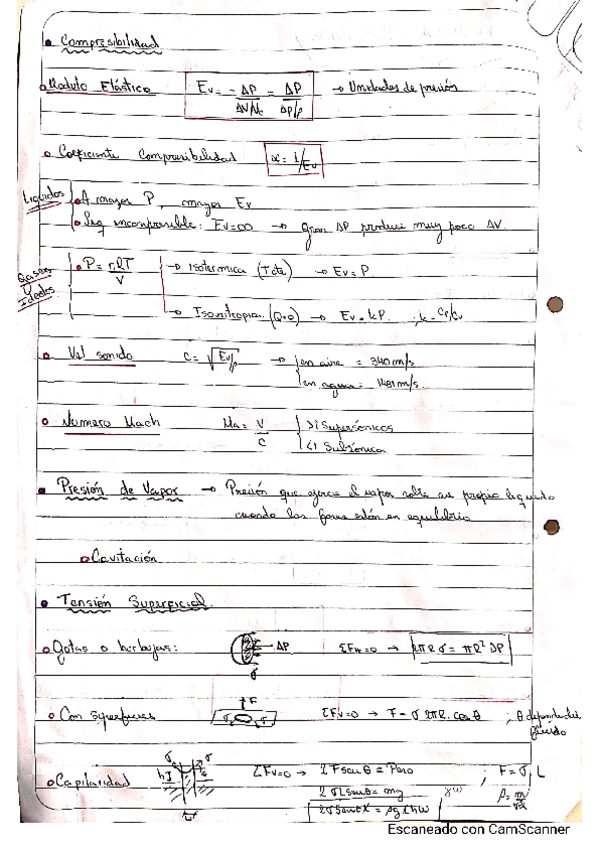 • Compresibilidad
o Modulo Elástico Ev = -ΔP/ΔV/V = ΔP/Δρ/ρ → Unidades de presión
o Coeficiente Compresibilidad α = 1/Ev
Líquidos • A mayor P, mayor Ev
• incompresible: Ev=∞ → Gran ΔP produce muy poco ΔV.
Gases y Ideales • P = nRT/V → isotermica (T cte) → Ev = P
→ Isentropica (Q=0) → Ev = kP. ; k = Cp/Cv
o Vel sonido c = √Ev/ρ → en aire = 340 m/s
en agua = 1481 m/s.
o Numero Mach Ma = V/C >1 Supersónicos
<1 Subsónica
• Presión de Vapor → Presión que ejerce el vapor sobre su propio líquido
cuando las fases están en equilibrio
o Cavitación
• Tensión Superficial.
o Gotas o burbujas: ΔP σ ΣFH=0 → 2πRσ = πR² ΔP
o Con superficies F σ σ ΣFv=0 → F = σ 2πR. cos θ ; θ depende del
fluido
o Capilaridad σ σ h ΣFv=0 → 2F sen θ = Peso ; F = σ L
2σL senθ = mg ρ = m/